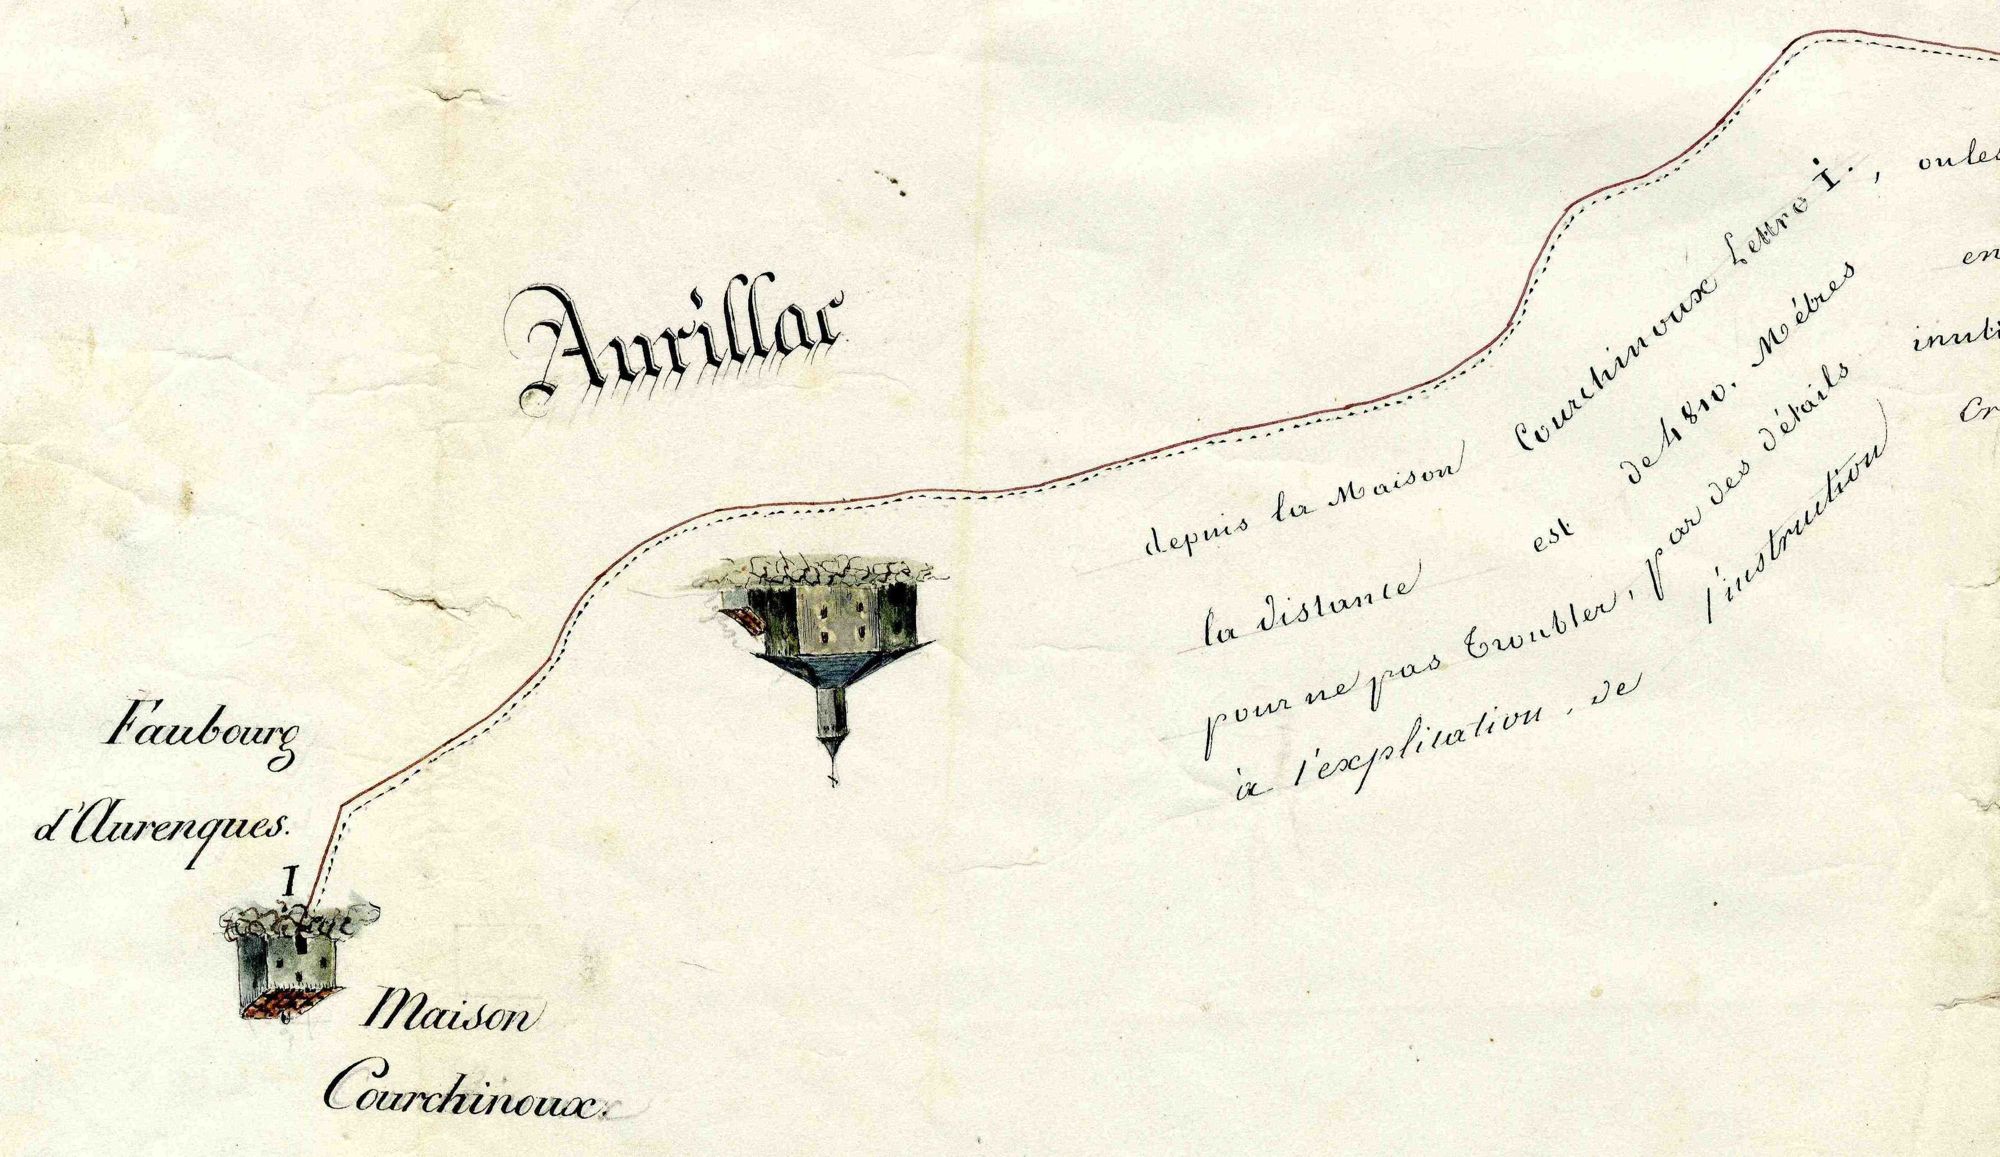 Aurillac
Faubourg
d'Aurenques.
I
Maison
Courchinoux.
depuis la Maison Courchinoux Lettre I., ou les
la distance est de 4810. Métres en
pour ne pas troubler, par des détails inuti
à l'explication, de l'instruction Cr